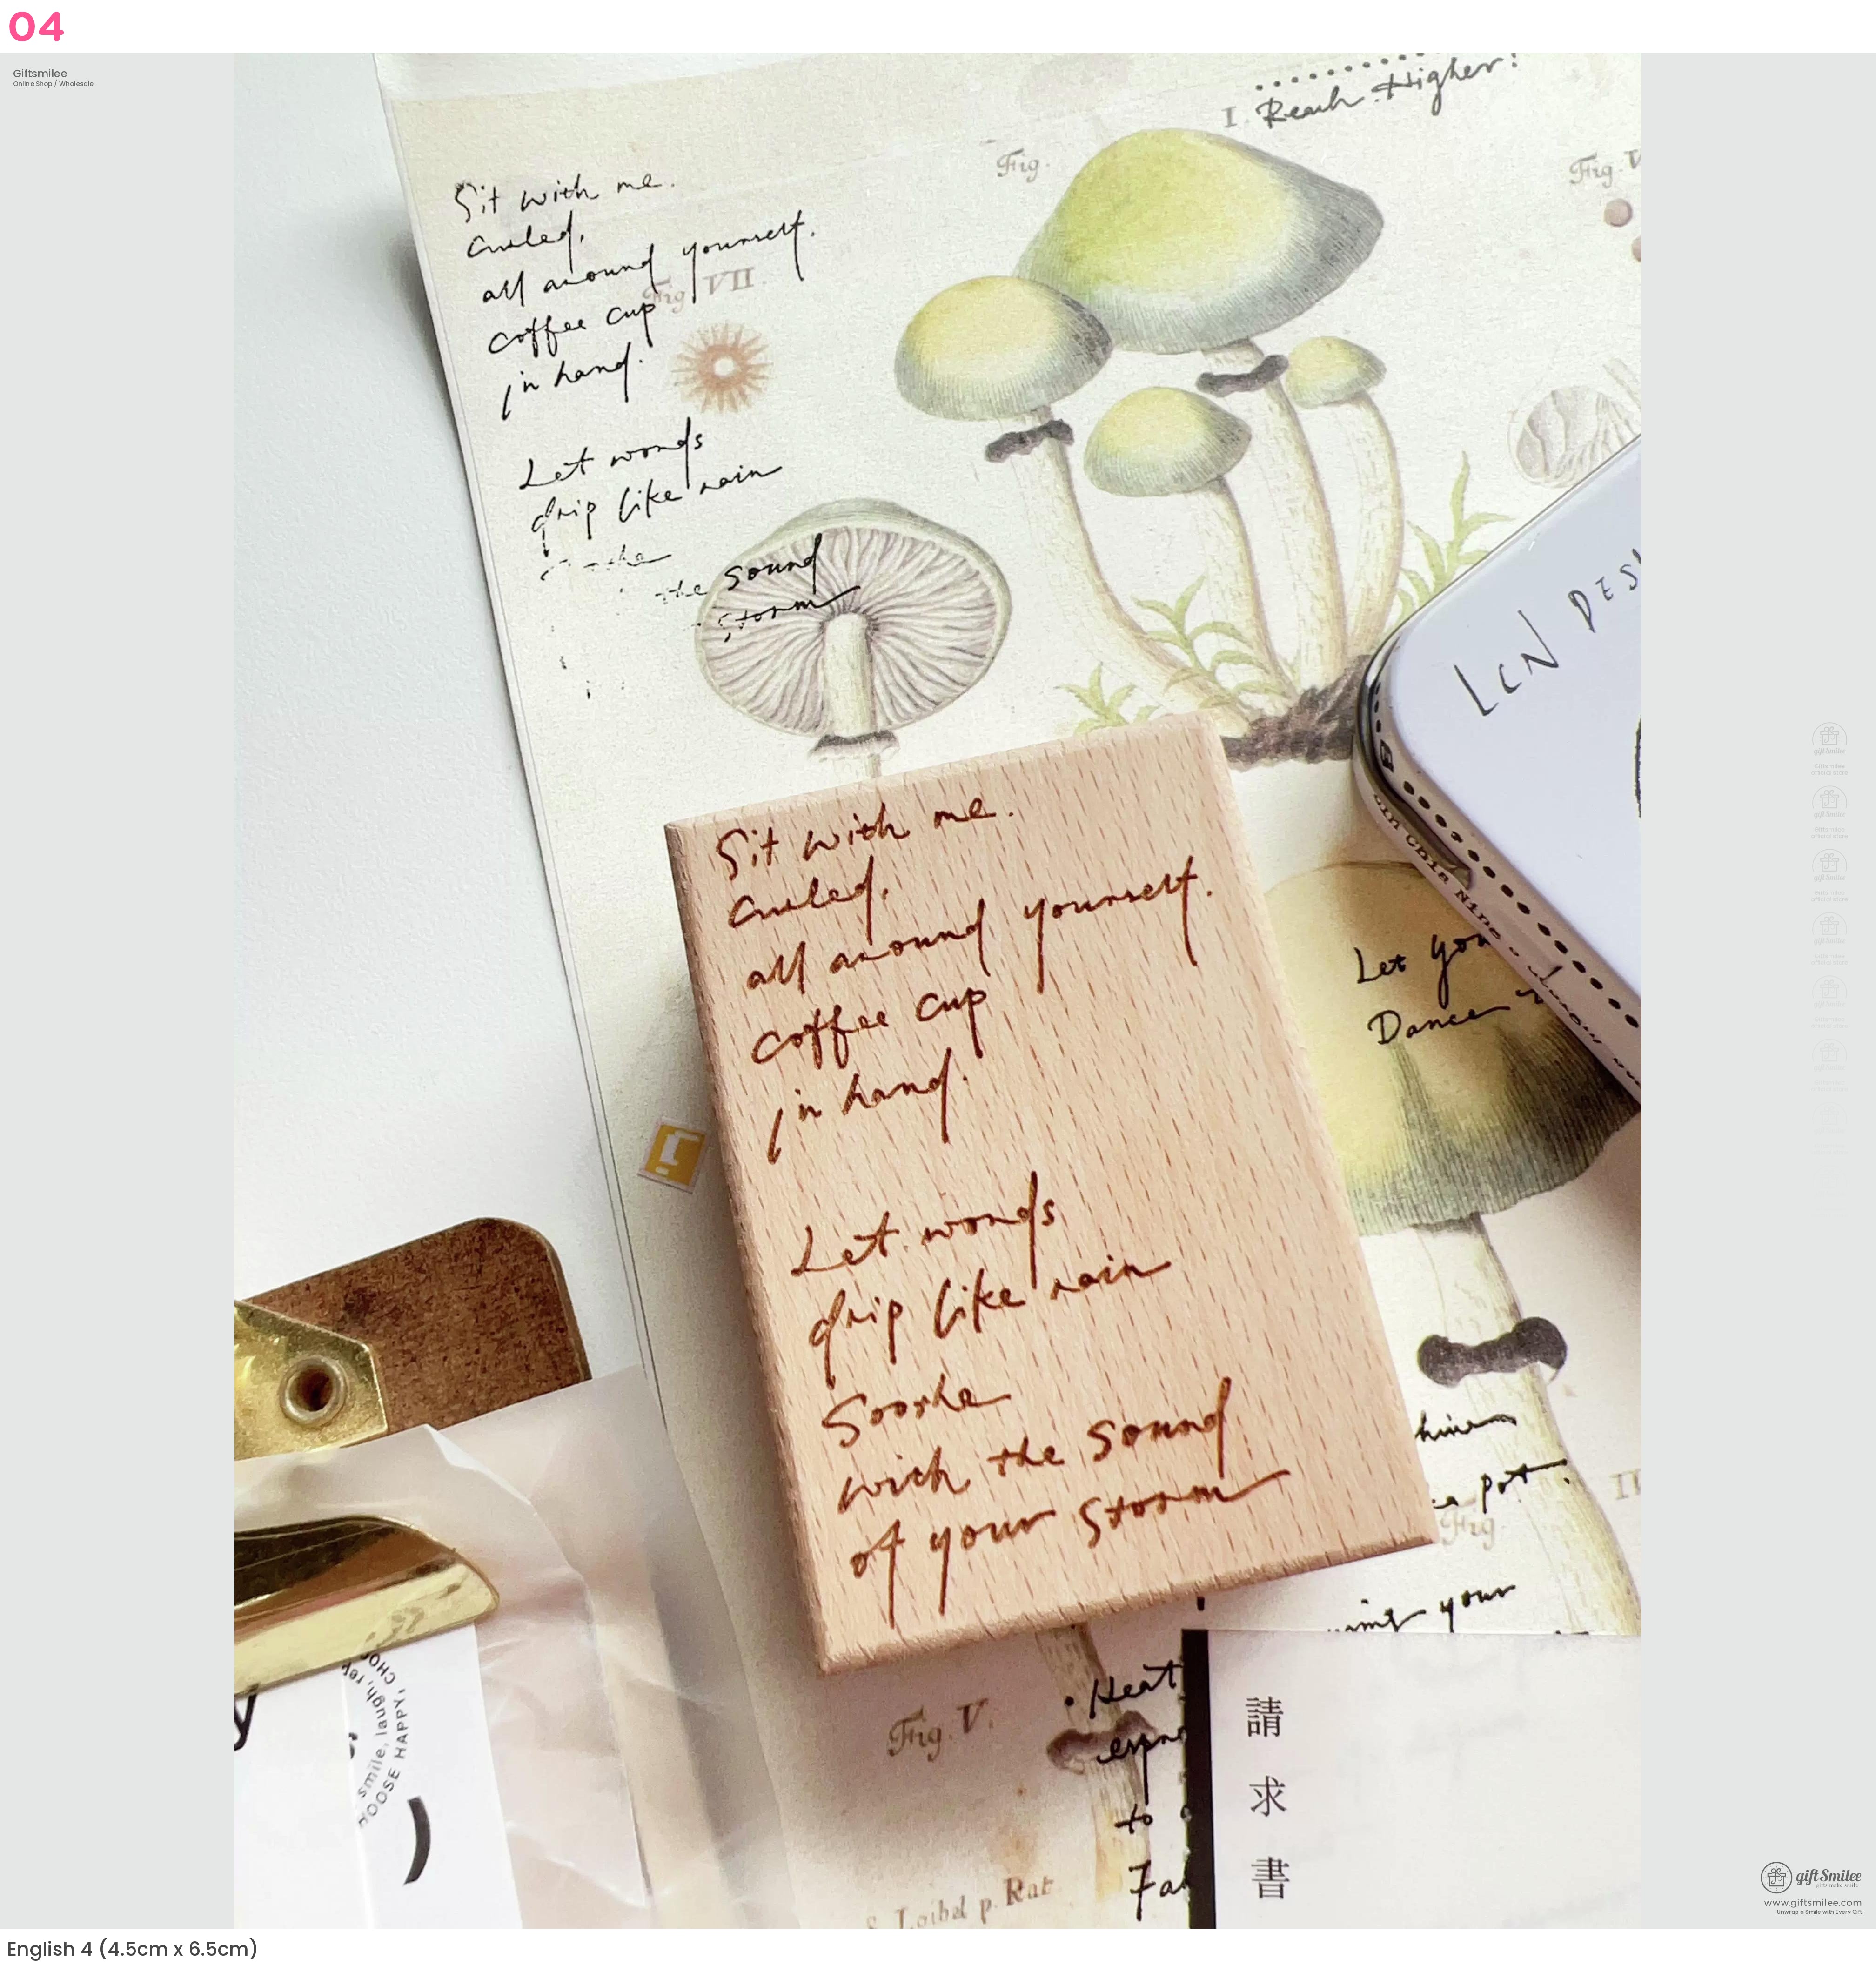 04
Giftsmilee
Online Shop / Wholesale
I. Reach Higher!
Fig.
Fig. V
Sit with me.
Curled,
all around yourself.
Fig. VII.
coffee cup
in hand.
Let words
drip like rain
Soothe
the sound
storm
LCN DESI
Sit with me.
Curled,
all around yourself.
coffee cup
in hand.
Let words
drip like rain
Soothe
with the sound
of your storm
Let you
Dance
a pot.
Fig.
your
Fig. V.
• Heat
to
請
求
書
smile, laugh,
HOOSE HAPPY,
p. Rat
gift Smilee
gifts make smile
www.giftsmilee.com
Unwrap a Smile with Every Gift
English 4 (4.5cm x 6.5cm)